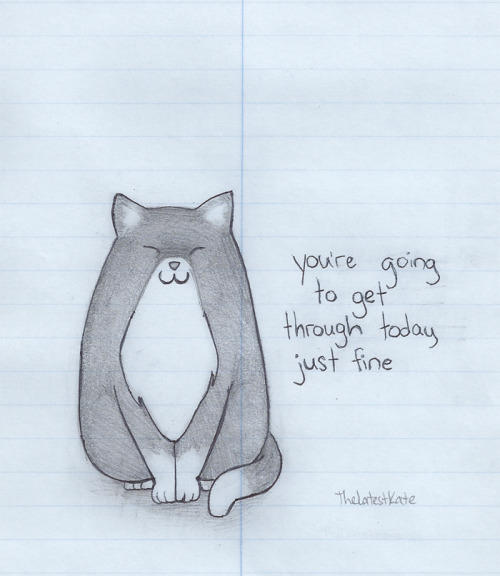 you're going
to get
through today
just fine
TheLatestKate